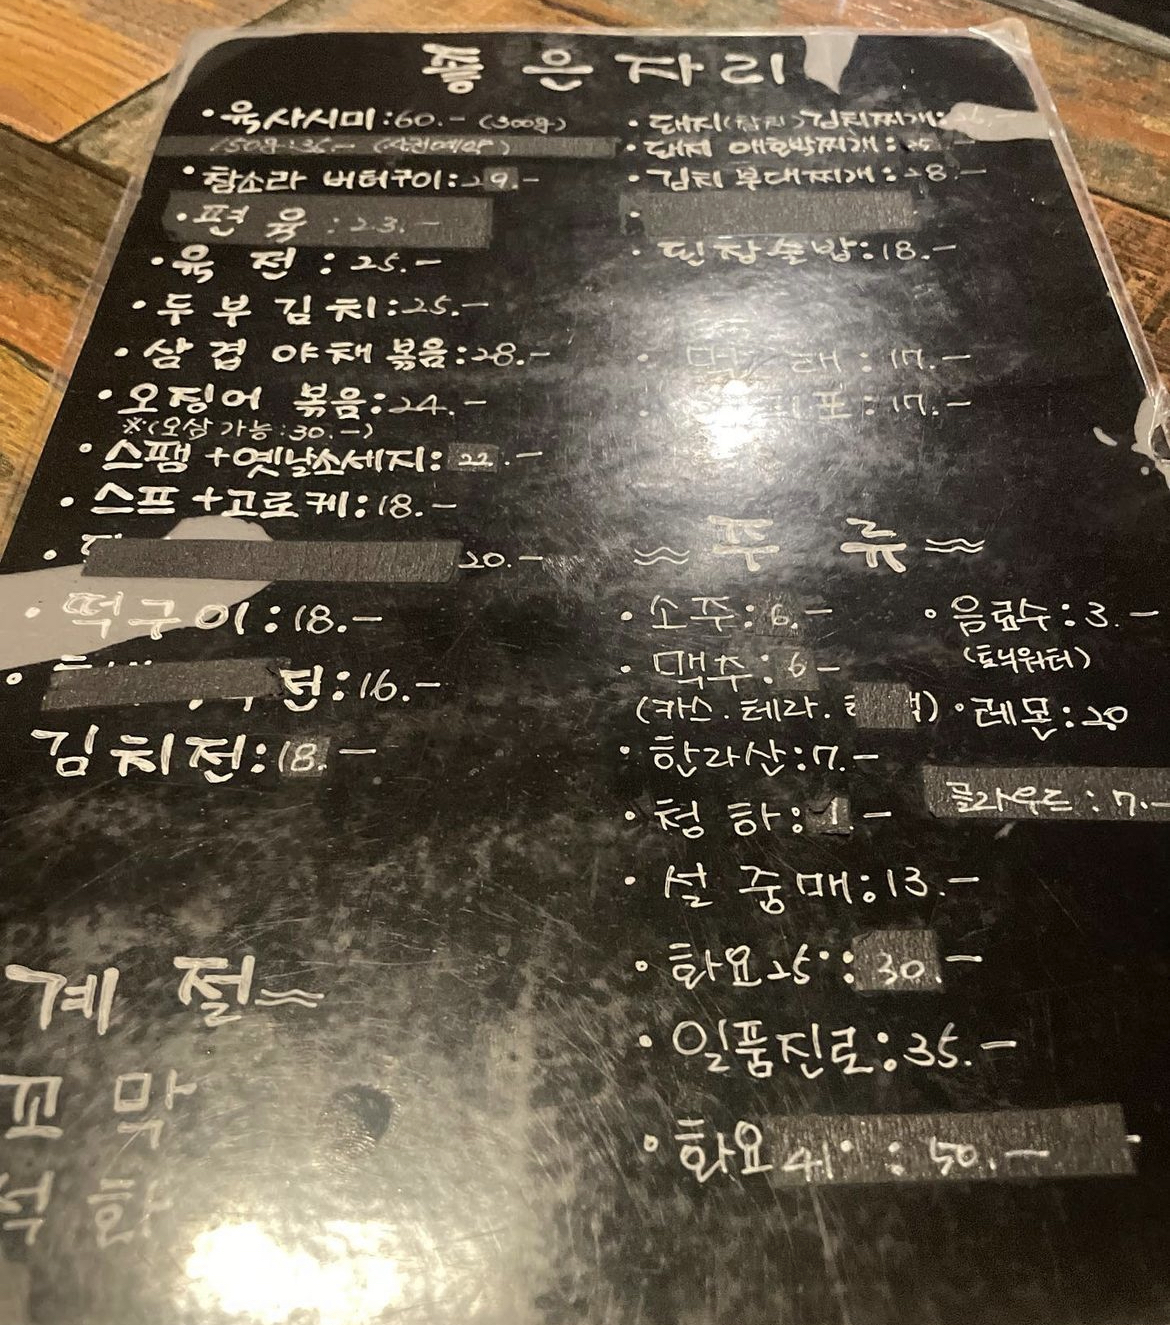 좋은자리
·육사시미:60.- (300g)
150g:36.- (사전예약)
·참소라 버터구이:29.-
·편 육 :23.-
·육 전 : 25.-
·두 부 김 치:25.-
·삼 겹 야채 볶음:28.-
·오징어 볶음:24.-
※(오삼 가능:30.-)
·스팸+옛날소세지:22.-
·스프+고로케:18.-
· 20.-
·떡구이:18.-
· 전:16.-
김치전:18.-
계 절~
꼬 막
석 화
·돼지 김치찌개:
·돼지 애호박찌개:
·김치 부대찌개:28.-
·된장술밥:18.-
· 태:17.-
· 포:17.-
≈ 주 류 ≈
·소주:6.-
·맥주:6-
(카스.테라. )
·한라산:7.-
·청 하: -
·설 중매:13.-
·화요25°:30.-
·일품진로:35.-
·화요 41° : 50.-
·음료수:3.-
(토닉워터)
·레몬:20
클라우드:7.-